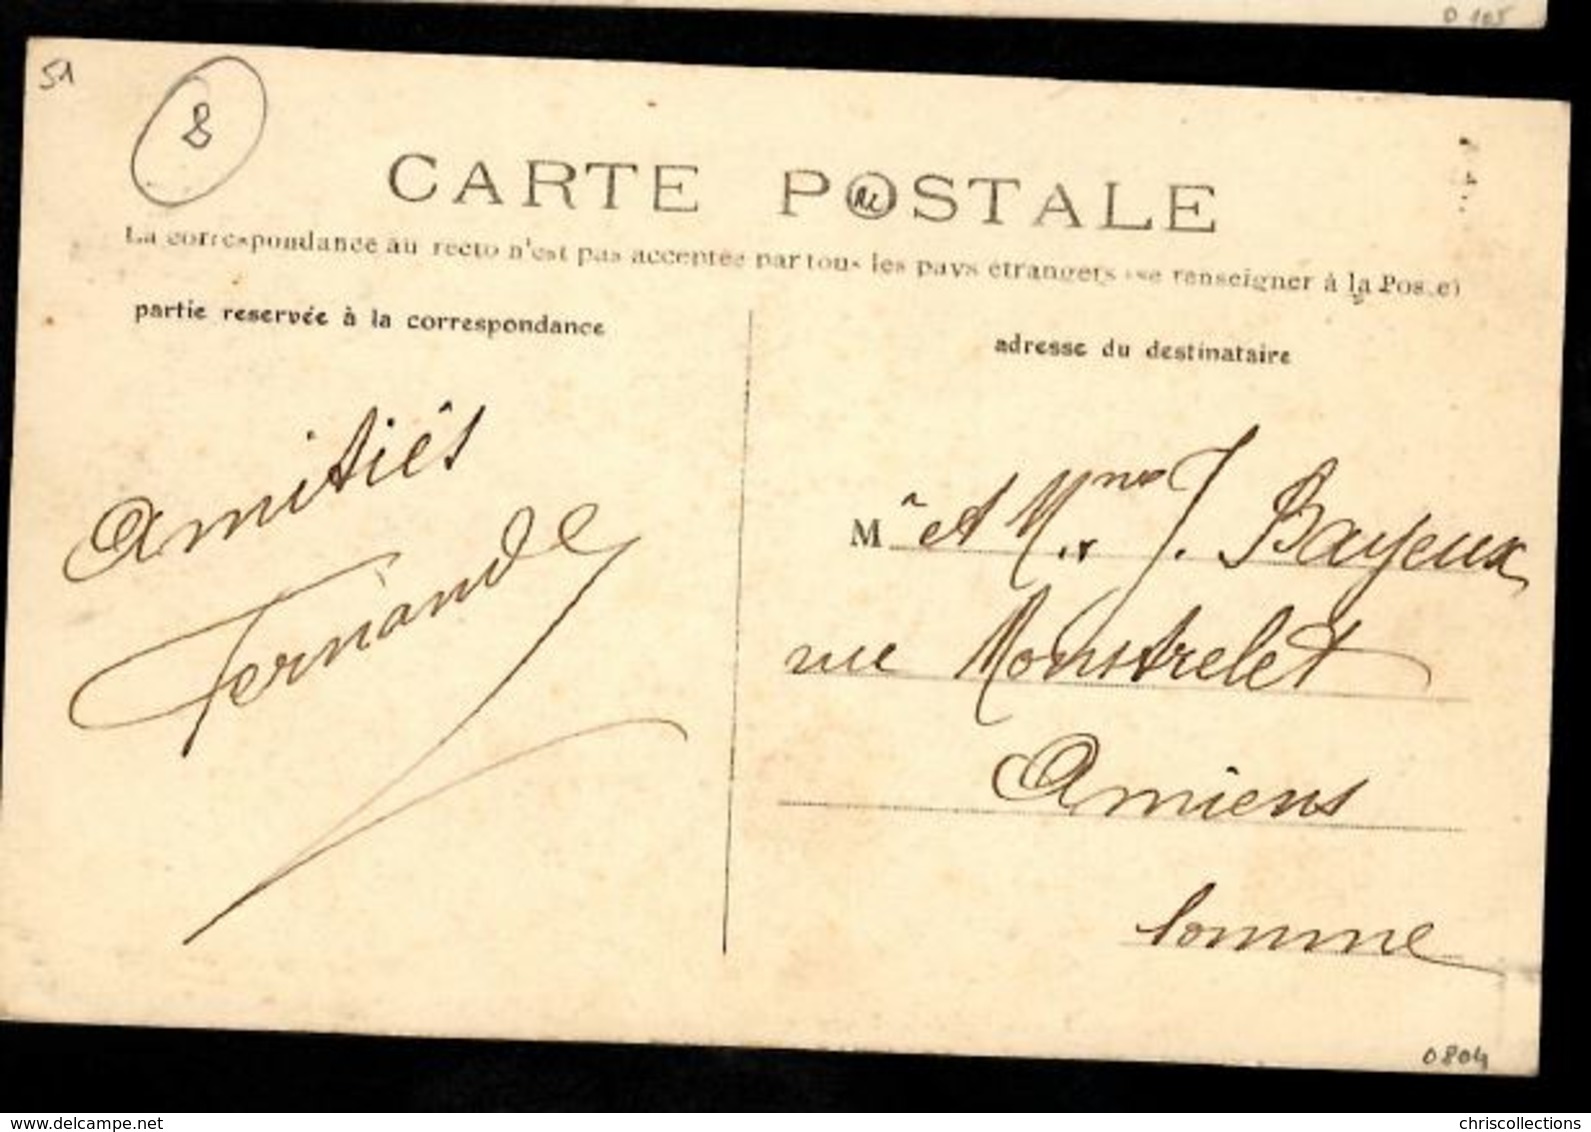 0 105
51
8
CARTE POSTALE
La correspondance au recto n'est pas acceptée par tous les pays étrangers (se renseigner à la Poste)
partie reservée à la correspondance
adresse du destinataire
Amitiés
Fernande
M r et Mme J. Bayeux
rue Monstrelet
Amiens
Somme
0804
www.delcampe.net
chriscollections